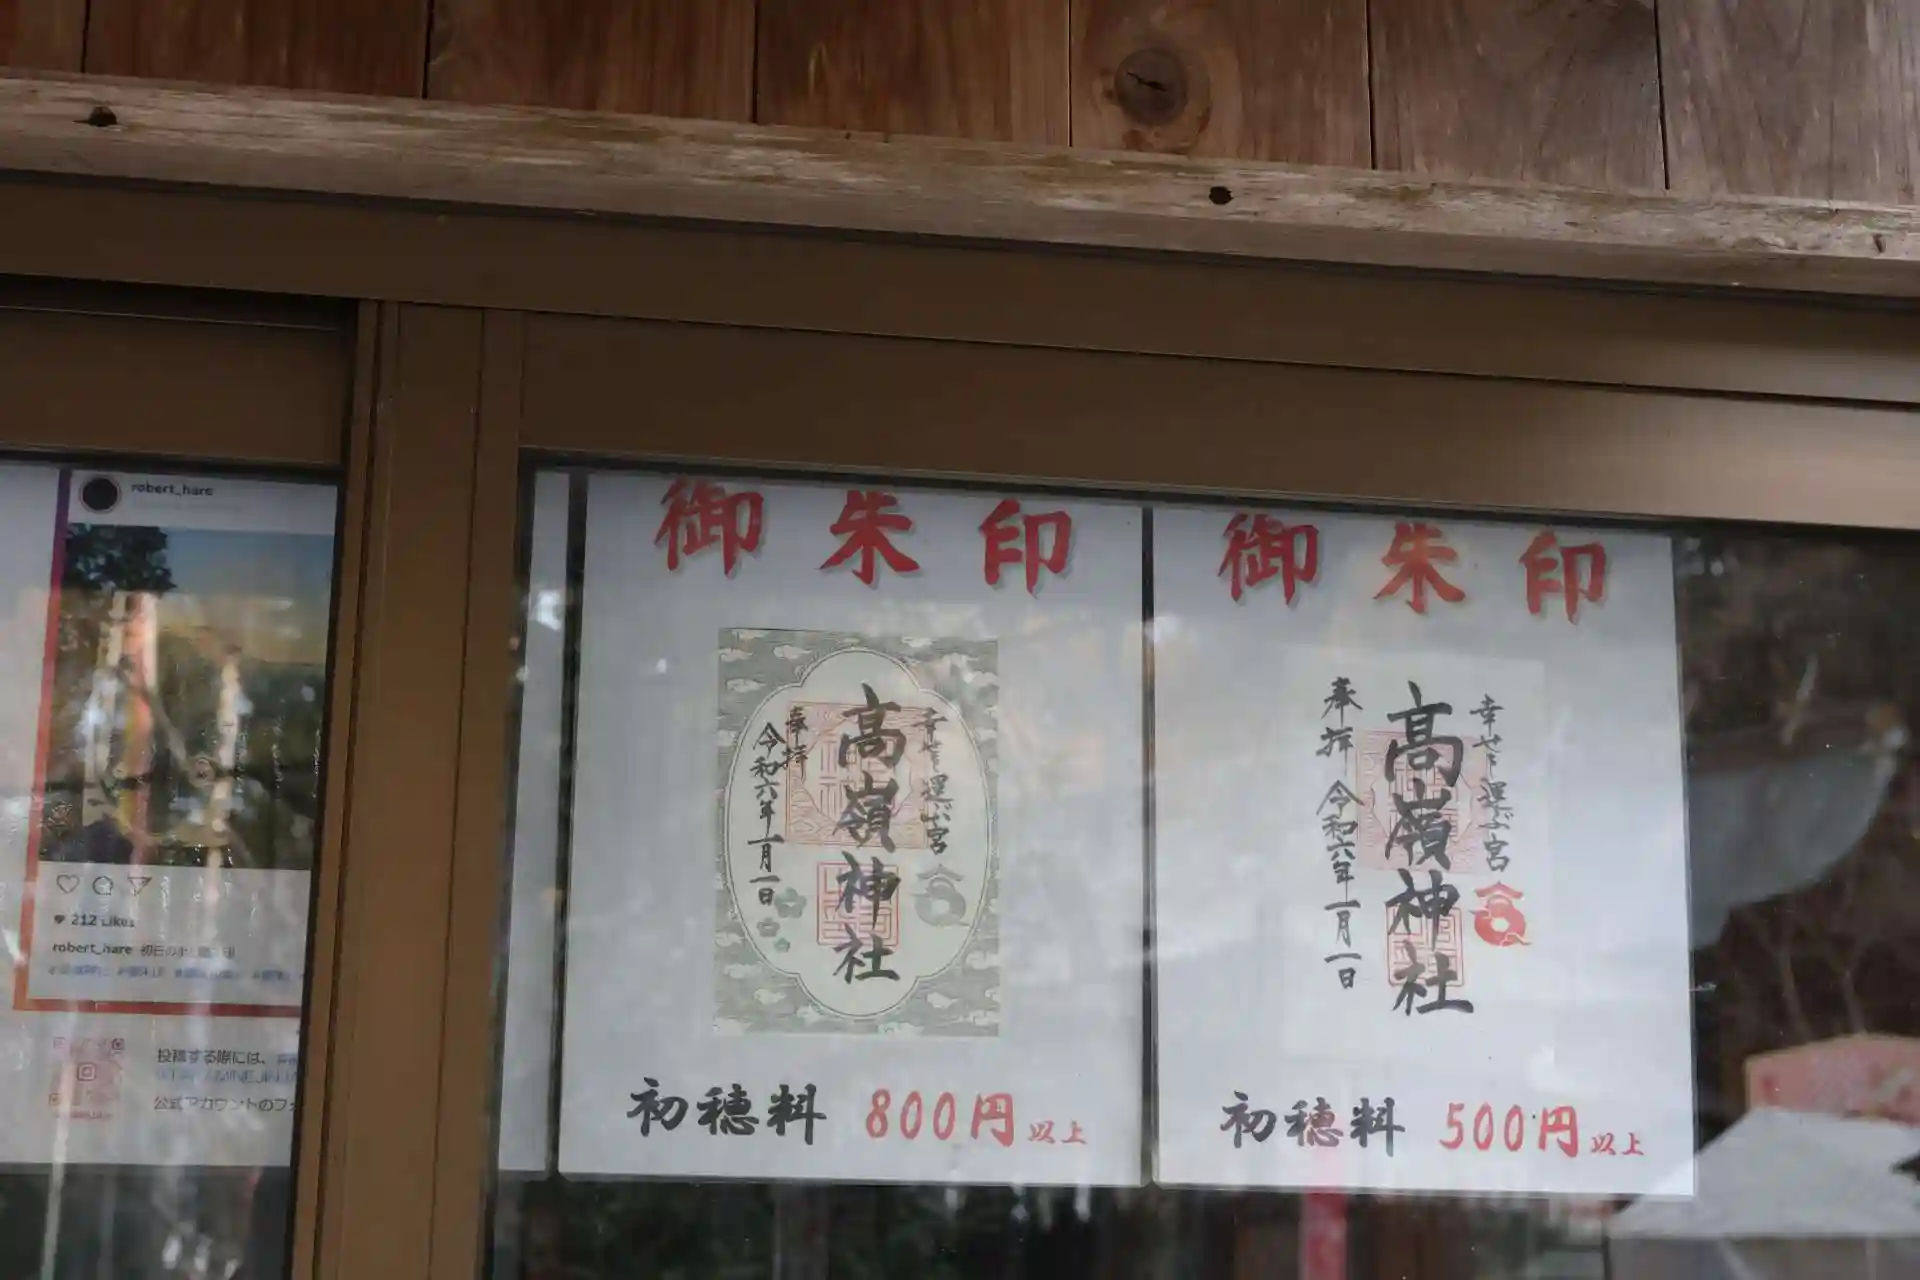 robert_hare
212 Likes
robert_hare
投稿する際には、
公式アカウントのフォ
御朱印
幸せを運ぶ宮
高嶺神社
奉拝
令和六年一月一日
初穂料 800円以上
御朱印
幸せを運ぶ宮
高嶺神社
奉拝 令和六年一月一日
初穂料 500円以上